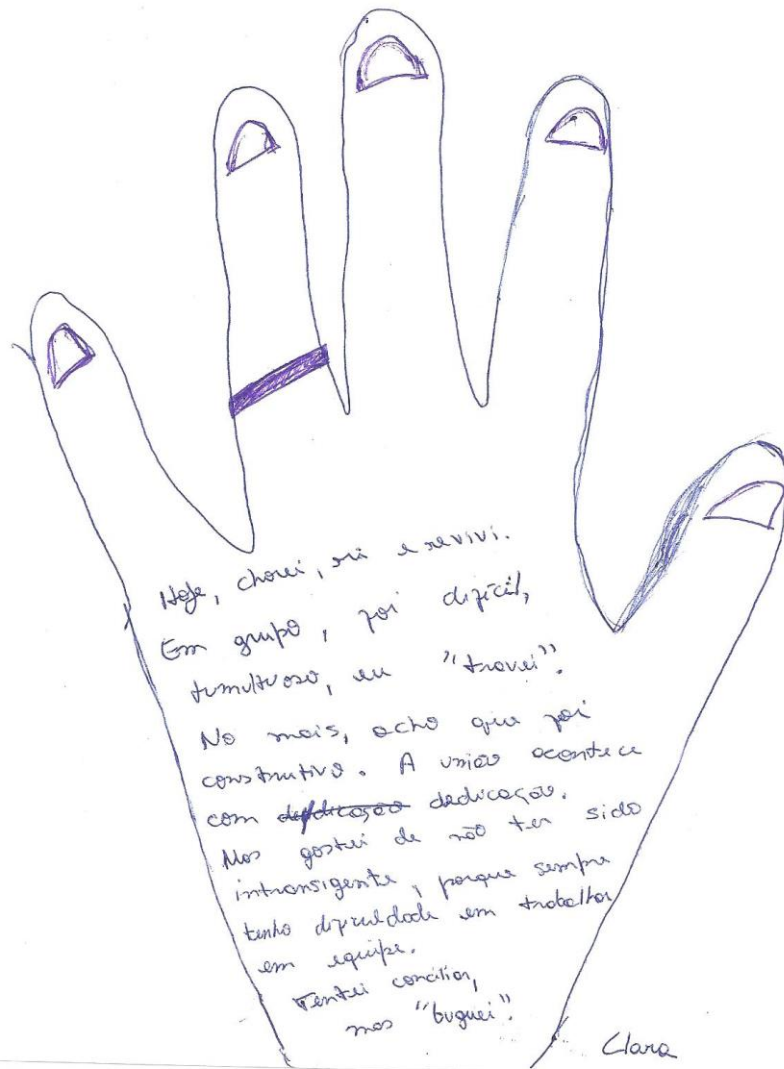 Hoje, chorei, ri e revivi.
Em grupo, foi difícil,
tumultuoso, eu "travei".
No mais, acho que foi
construtivo. A união acontece
com dedicação dedicação.
Mas gostei de não ter sido
intransigente, porque sempre
tenho dificuldade em trabalhar
em equipe.
Tentei conciliar,
mas "buguei".
Clara